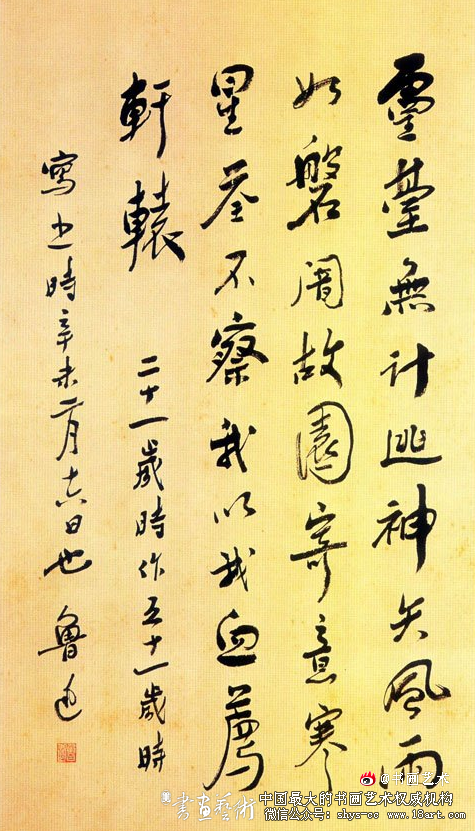 靈臺無計逃神矢風雨
如磐闇故園寄意寒
星荃不察我以我血薦
軒轅 二十一歲時作五十一歲時
寫之時辛未二月十六日也 魯迅
@书画艺术
書畫藝術
中国最大的书画艺术权威机构
微信公众号: shys-cc www.18art.com